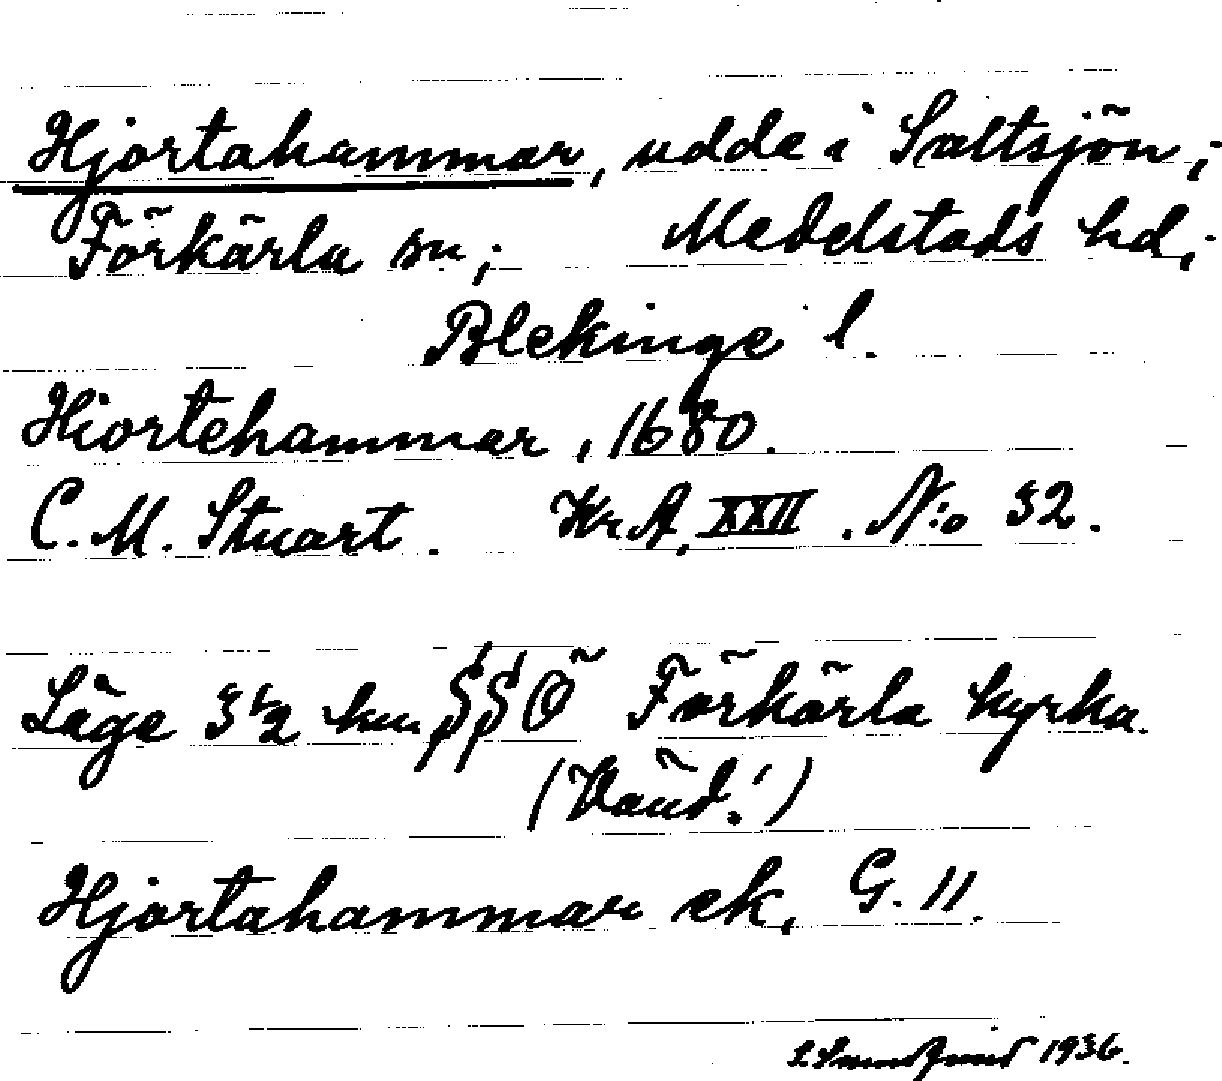 Hjortahammar, udde i Saltsjön,;
Förkärla sn,; Medelstads hd,;
Blekinge l.
Hiortehammar, 1680.
C. M. Stuart. Kr. A. XXII. N:o 32.
Läge 3 1/2 km SSÖ Förkärla kyrka.
(Vänd!)
Hjortahammar ek. G. 11.
1936.